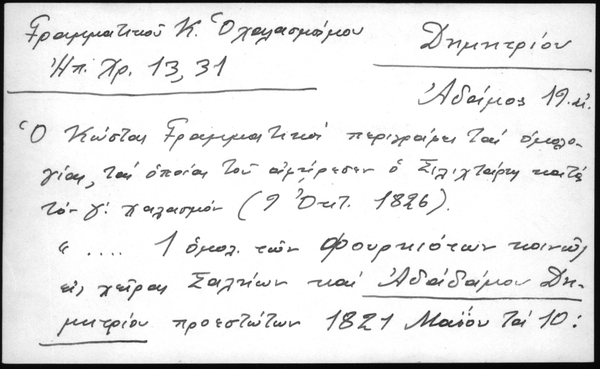 Γραμματικοῦ Κ. Ὁ χαλασμὸς μου
Δημητρίου
Ἠπ. Χρ. 13, 31
Ἀδαίμος 19. αἰ.
Ὁ Κώστας Γραμματικοῦ περιγράφει τὰς ὁμολο-
γίας, τὰς ὁποίας τοῦ ἀφῄρεσεν ὁ Σιλιχτάρης κατὰ
τὸν γ'. χαλασμόν (9 Ὀκτ. 1826).
" .... 1 ὁμολ. τῶν Φουρκιότων κοινῶς
εἰς χεῖρας Σαλκίων καὶ Ἀδαδάμου Δη-
μητρίου προεστώτων 1821 Μαΐου τὰ 10: